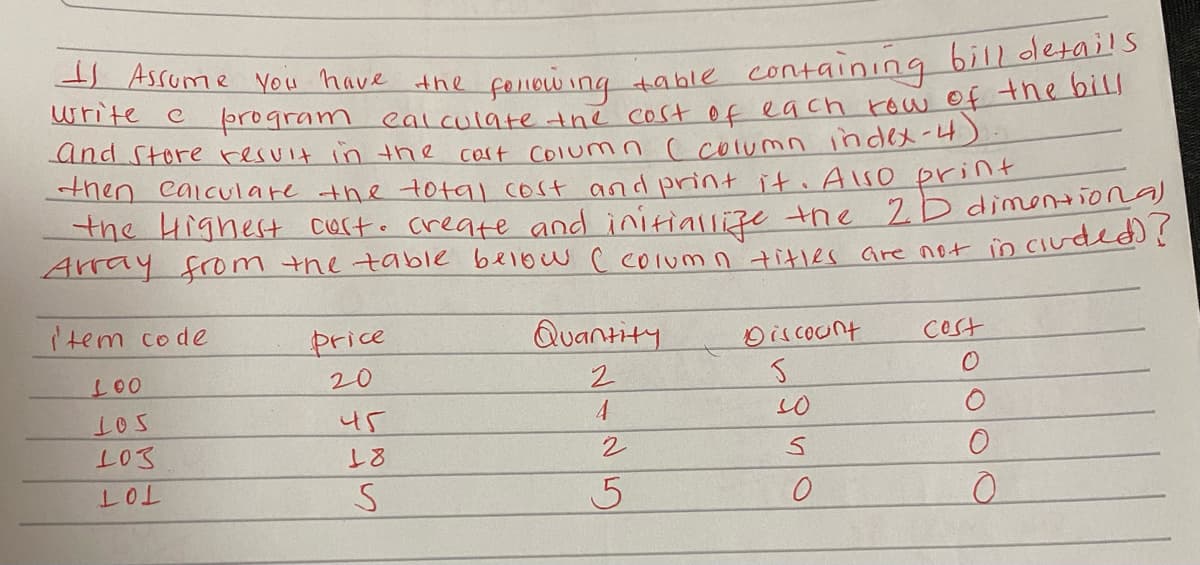 1) Assume you have the following table containing bill details
write e program calculate the cost of each row of the bill
and store result in the cost column (column index-4).
then calculate the total cost and print it. Also print
the Highest cost. create and initiallize the 2D dimentional
Array from the table below (column titles are not included)?
item code price Quantity Discount cost
100 20 2 5 0
105 45 1 10 0
103 18 2 5 0
101 5 5 0 0